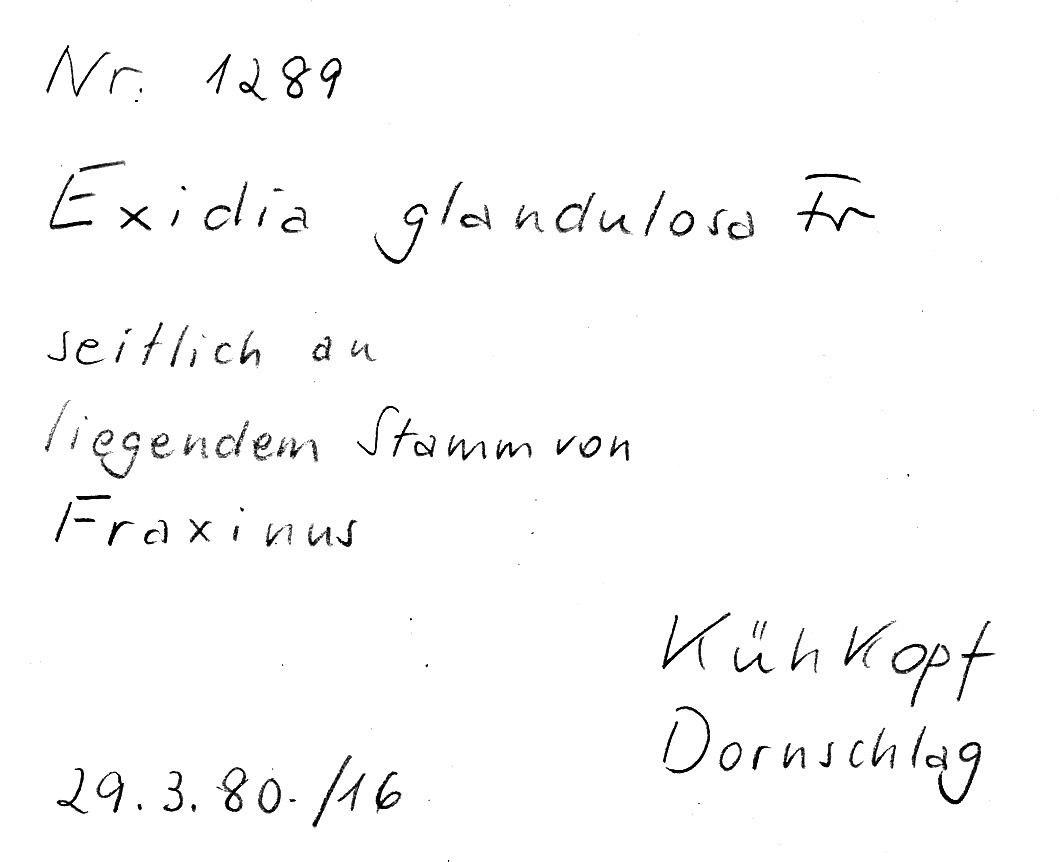 Nr. 1289
Exidia glandulosa Fr
seitlich an
liegendem Stamm von
Fraxinus
Kühkopf
Dornschlag
29.3.80./16